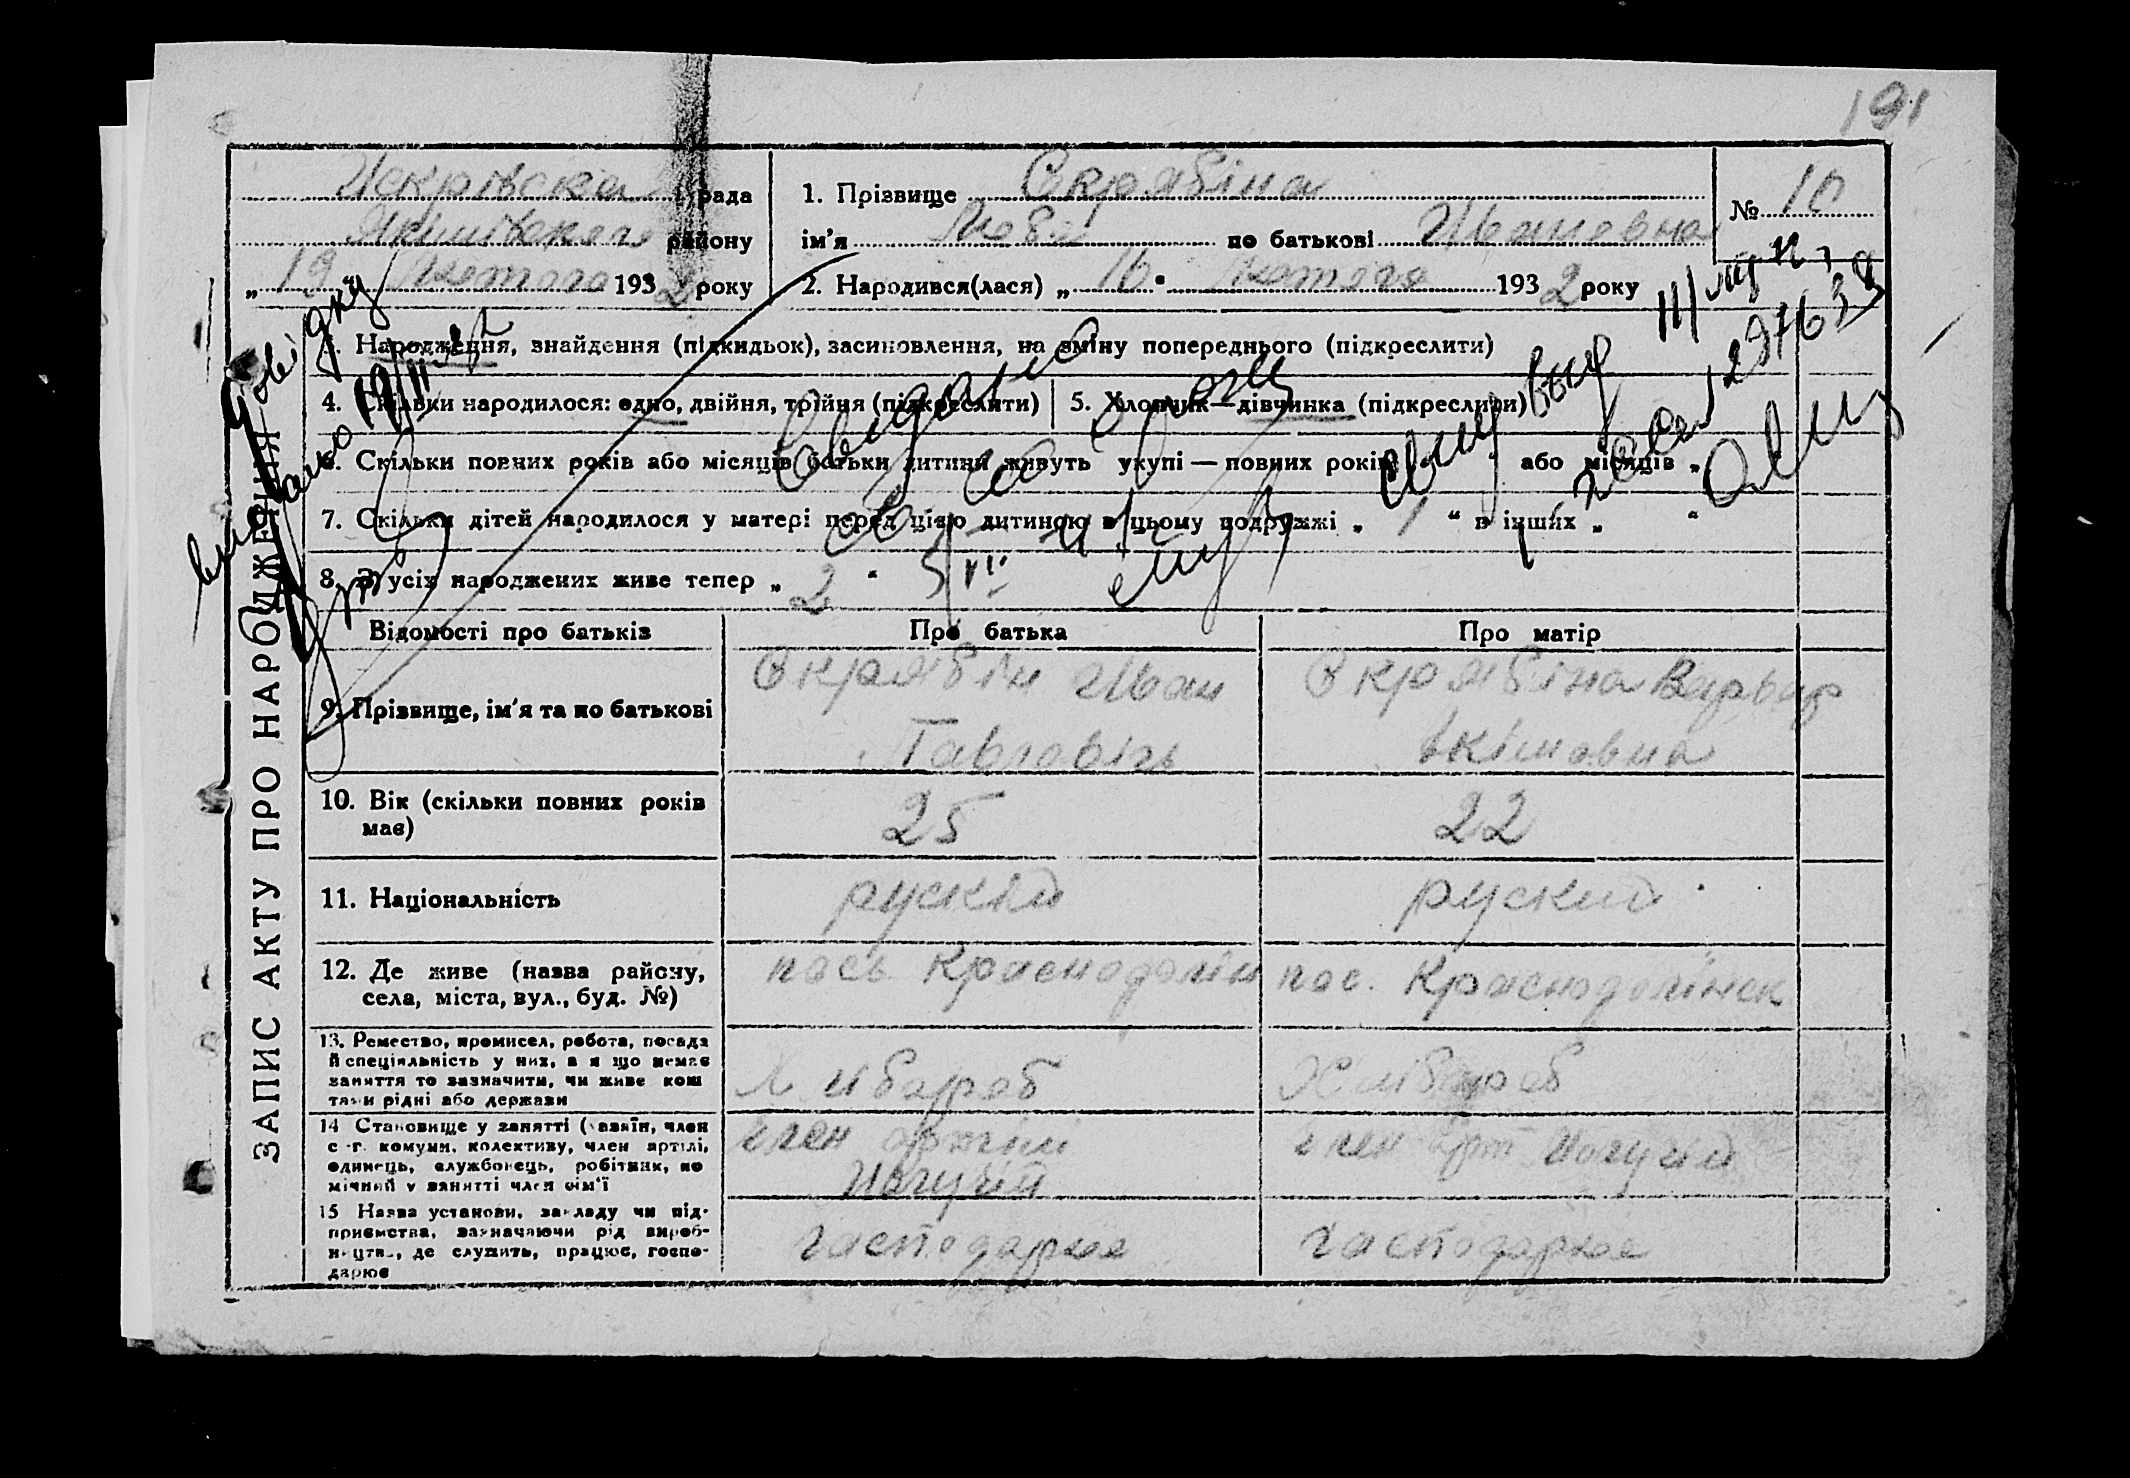 191
Искрівска рада
Якимівского району
„19" Лютого 1932 року
1. Прізвище Скрябіна
ім'я Люба по батькові Ивановна
2. Народився(лася) „16" Лютого 1932 року
№ 10
3. Народження, знайдення (підкидьок), засиновлення, на зміну попереднього (підкреслити)
4. Скільки народилося: одно, двійня, трійня (підкреслити)
5. Хлопчик—дівчинка (підкреслити)
6. Скільки повних років або місяців батьки дитини живуть укупі — повних років або місяців „
7. Скільки дітей народилося у матері перед цією дитиною в цьому подружжі „ 1 “ в інших „ “
8. З усіх народжених живе тепер „ 2 “
ЗАПИС АКТУ ПРО НАРОДЖЕННЯ
Відомості про батьків
Про батька
Про матір
9. Прізвище, ім'я та по батькові
Скрябін Иван
Павловіч
Скрябіна Варвар
Якімовна
10. Вік (скільки повних років
має)
25
22
11. Національність
рускій
руский
12. Де живе (назва району,
села, міста, вул., буд. №)
пось. Краснодолін
пос. Краснодолінск
13. Ремество, промисел, робота, посада
й спеціяльність у них, а я що немає
заняття то зазначити, чи живе кош
тами рідні або держави
Хлібороб
Хлібороб
14 Становище у занятті (хазяїн, член
с.-г. комуни, колективу, член артілі,
одинець, службовець, робітник, по
мічний у занятті член сім'ї
член артілі
Могучій
член арт Могучій
15 Назва установи, закладу чи під-
приємства, зазначаючи рід вироб-
ництва, де служить, працює, госпо-
дарює
господарює
господарює